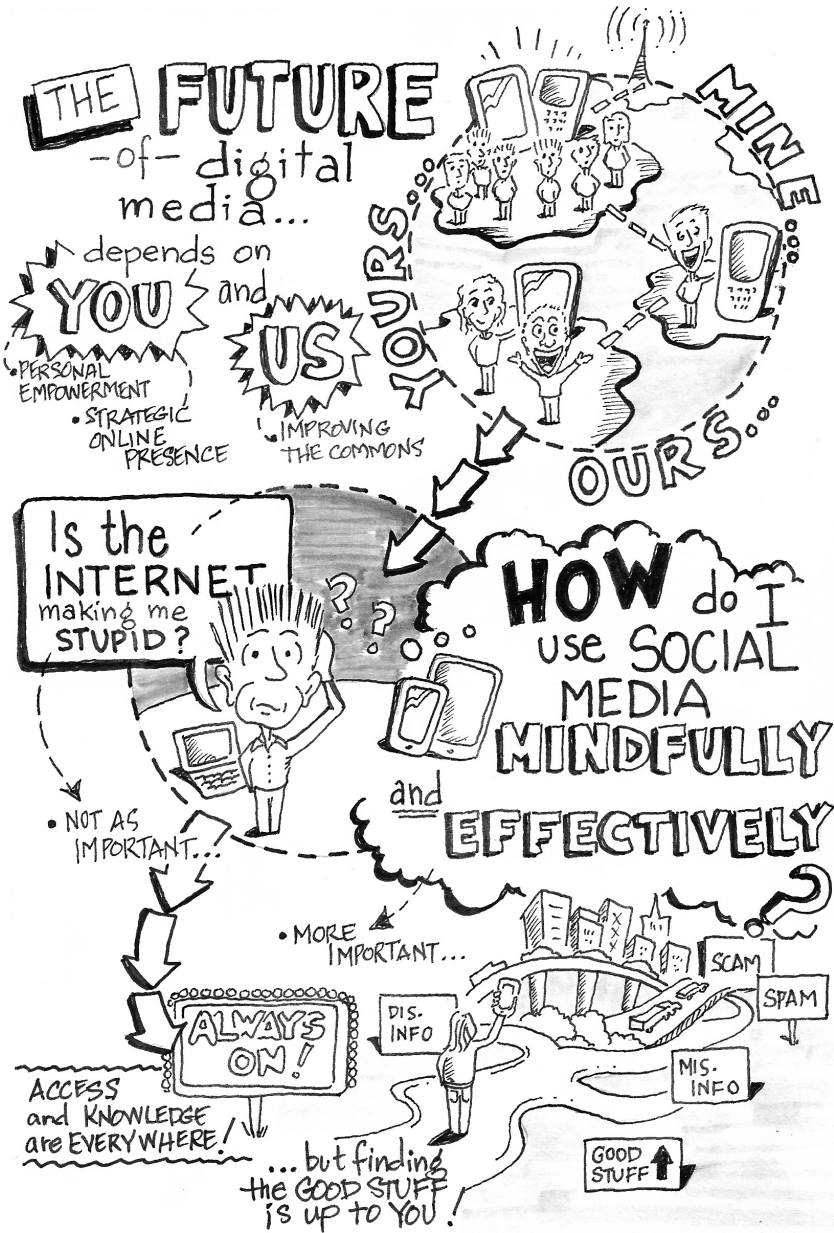 THE FUTURE
-of- digital
media...
depends on
YOU and
US
• PERSONAL
EMPOWERMENT
• STRATEGIC
ONLINE
PRESENCE
• IMPROVING
THE COMMONS
YOURS...
MINE...
OURS...
Is the
INTERNET
making me
STUPID?
? ?
HOW do I
use SOCIAL
MEDIA
MINDFULLY
and
EFFECTIVELY
?
• NOT AS
IMPORTANT...
• MORE
IMPORTANT...
ALWAYS
ON!
ACCESS
and KNOWLEDGE
are EVERYWHERE!
DIS.
INFO
SCAM
SPAM
MIS.
INFO
GOOD
STUFF
...but finding
the GOOD STUFF
is up to YOU!